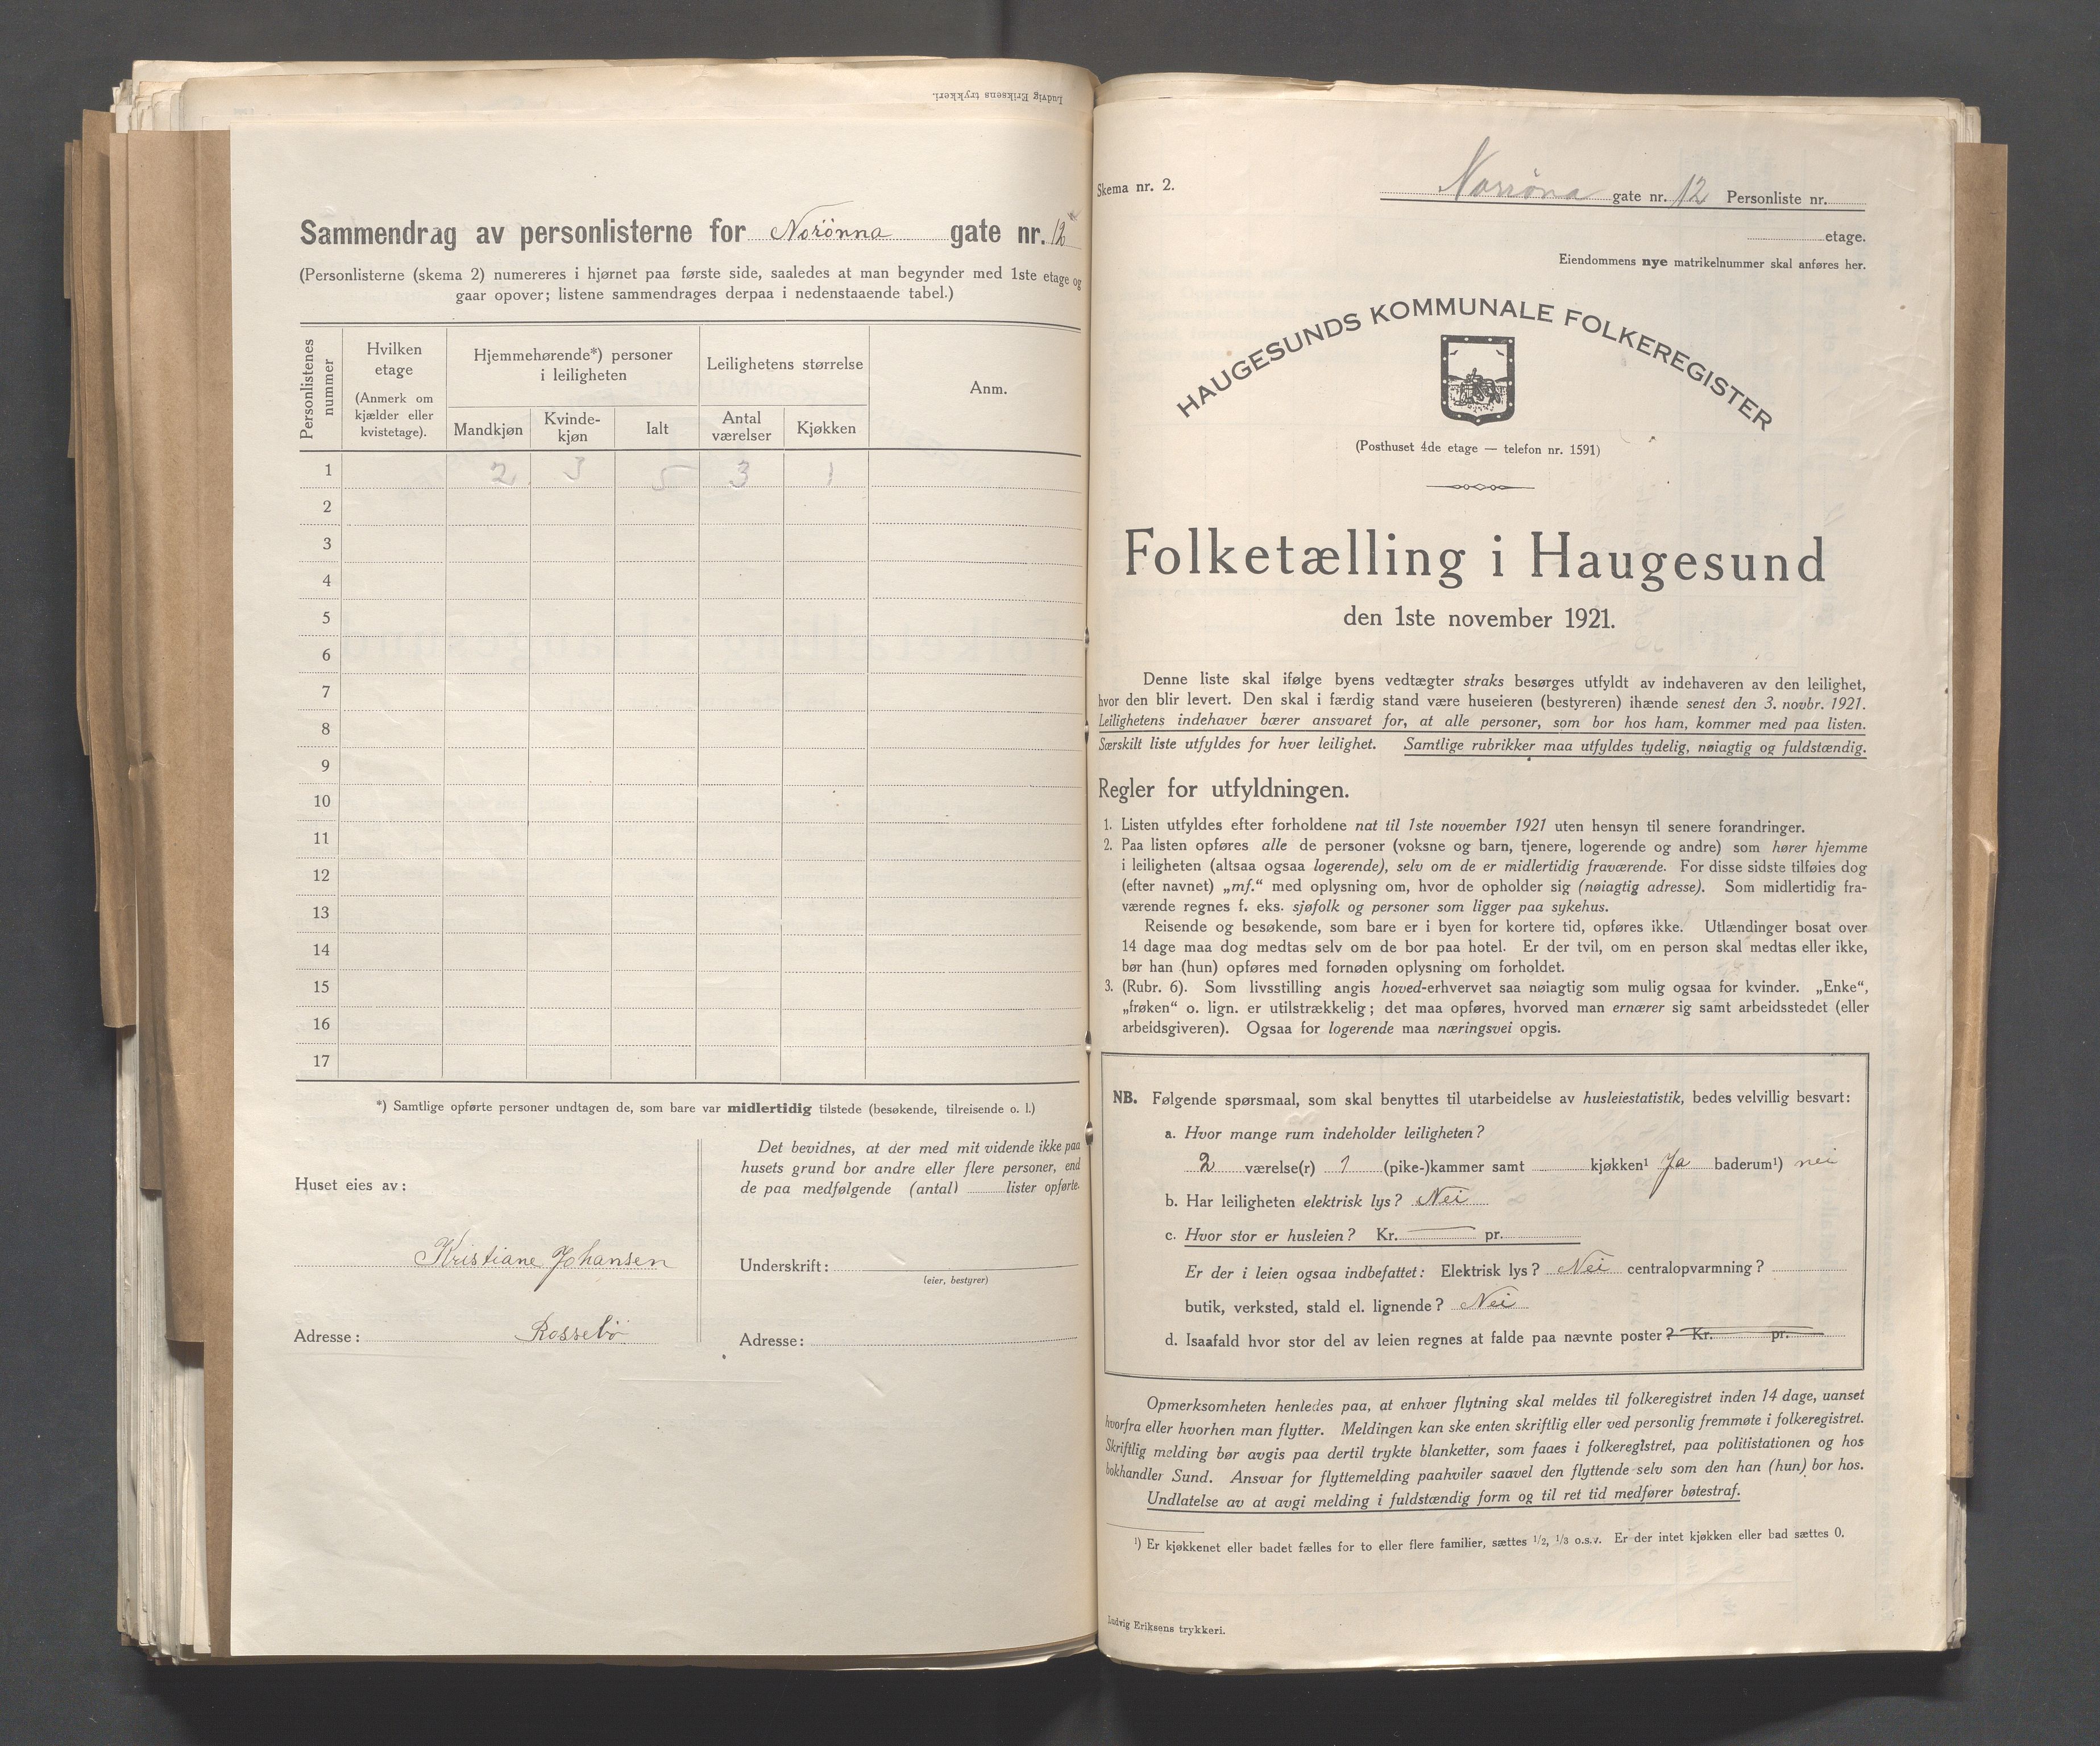 Ludvig Eriksens trykkeri.
Sammendrag av personlisterne for Norönna gate nr. 12
(Personlisterne (skema 2) numereres i hjørnet paa første side, saaledes at man begynder med 1ste etage og
gaar opover; listene sammendrages derpaa i nedenstaaende tabel.)
Personlistenes nummer
Hvilken etage
(Anmerk om kjælder eller kvistetage).
Hjemmehørende*) personer i leiligheten
Leilighetens størrelse
Anm.
Mandkjøn Kvinde-kjøn Ialt Antal værelser Kjøkken
1 2 3 5 3 1
2
3
4
5
6
7
8
9
10
11
12
13
14
15
16
17
*) Samtlige opførte personer undtagen de, som bare var midlertidig tilstede (besøkende, tilreisende o. l.)
Huset eies av:
Kristiane Johansen
Adresse: Rossebö
Det bevidnes, at der med mit vidende ikke paa
husets grund bor andre eller flere personer, end
de paa medfølgende (antal) lister opførte.
Underskrift:
(eier, bestyrer)
Adresse:
Skema nr. 2.
Norröna gate nr. 12 Personliste nr.
etage.
Eiendommens nye matrikelnummer skal anføres her.
HAUGESUNDS KOMMUNALE FOLKEREGISTER
(Posthuset 4de etage — telefon nr. 1591)
Folketælling i Haugesund
den 1ste november 1921.
Denne liste skal ifølge byens vedtægter straks besørges utfyldt av indehaveren av den leilighet,
hvor den blir levert. Den skal i færdig stand være huseieren (bestyreren) ihænde senest den 3. novbr. 1921.
Leilighetens indehaver bærer ansvaret for, at alle personer, som bor hos ham, kommer med paa listen.
Særskilt liste utfyldes for hver leilighet. Samtlige rubrikker maa utfyldes tydelig, nøiagtig og fuldstændig.
Regler for utfyldningen.
1. Listen utfyldes efter forholdene nat til 1ste november 1921 uten hensyn til senere forandringer.
2. Paa listen opføres alle de personer (voksne og barn, tjenere, logerende og andre) som hører hjemme
i leiligheten (altsaa ogsaa logerende), selv om de er midlertidig fraværende. For disse sidste tilføies dog
(efter navnet) „mf.“ med oplysning om, hvor de opholder sig (nøiagtig adresse). Som midlertidig fra-
værende regnes f. eks. sjøfolk og personer som ligger paa sykehus.
Reisende og besøkende, som bare er i byen for kortere tid, opføres ikke. Utlændinger bosat over
14 dage maa dog medtas selv om de bor paa hotel. Er der tvil, om en person skal medtas eller ikke,
bør han (hun) opføres med fornøden oplysning om forholdet.
3. (Rubr. 6). Som livsstilling angis hoved-erhvervet saa nøiagtig som mulig ogsaa for kvinder. „Enke“,
„frøken“ o. lign. er utilstrækkelig; det maa opføres, hvorved man ernærer sig samt arbeidsstedet (eller
arbeidsgiveren). Ogsaa for logerende maa næringsvei opgis.
NB. Følgende spørsmaal, som skal benyttes til utarbeidelse av husleiestatistik, bedes velvillig besvart:
a. Hvor mange rum indeholder leiligheten?
2 værelse(r) 1 (pike-)kammer samt kjøkken¹ Ja baderum¹) nei
b. Har leiligheten elektrisk lys? Nei
c. Hvor stor er husleien? Kr. — pr.
Er der i leien ogsaa indbefattet: Elektrisk lys? Nei centralopvarmning?
butik, verksted, stald el. lignende? Nei
d. Isaafald hvor stor del av leien regnes at falde paa nævnte poster? Kr. pr.
Opmerksomheten henledes paa, at enhver flytning skal meldes til folkeregistret inden 14 dage, uanset
hvorfra eller hvorhen man flytter. Meldingen kan ske enten skriftlig eller ved personlig fremmøte i folkeregistret.
Skriftlig melding bør avgis paa dertil trykte blanketter, som faaes i folkeregistret, paa politistationen og hos
bokhandler Sund. Ansvar for flyttemelding paahviler saavel den flyttende selv som den han (hun) bor hos.
Undlatelse av at avgi melding i fuldstændig form og til ret tid medfører bøtestraf.
¹) Er kjøkkenet eller badet fælles for to eller flere familier, sættes ¹/₂, ¹/₃ o.s.v. Er der intet kjøkken eller bad sættes 0.
Ludvig Eriksens trykkeri.